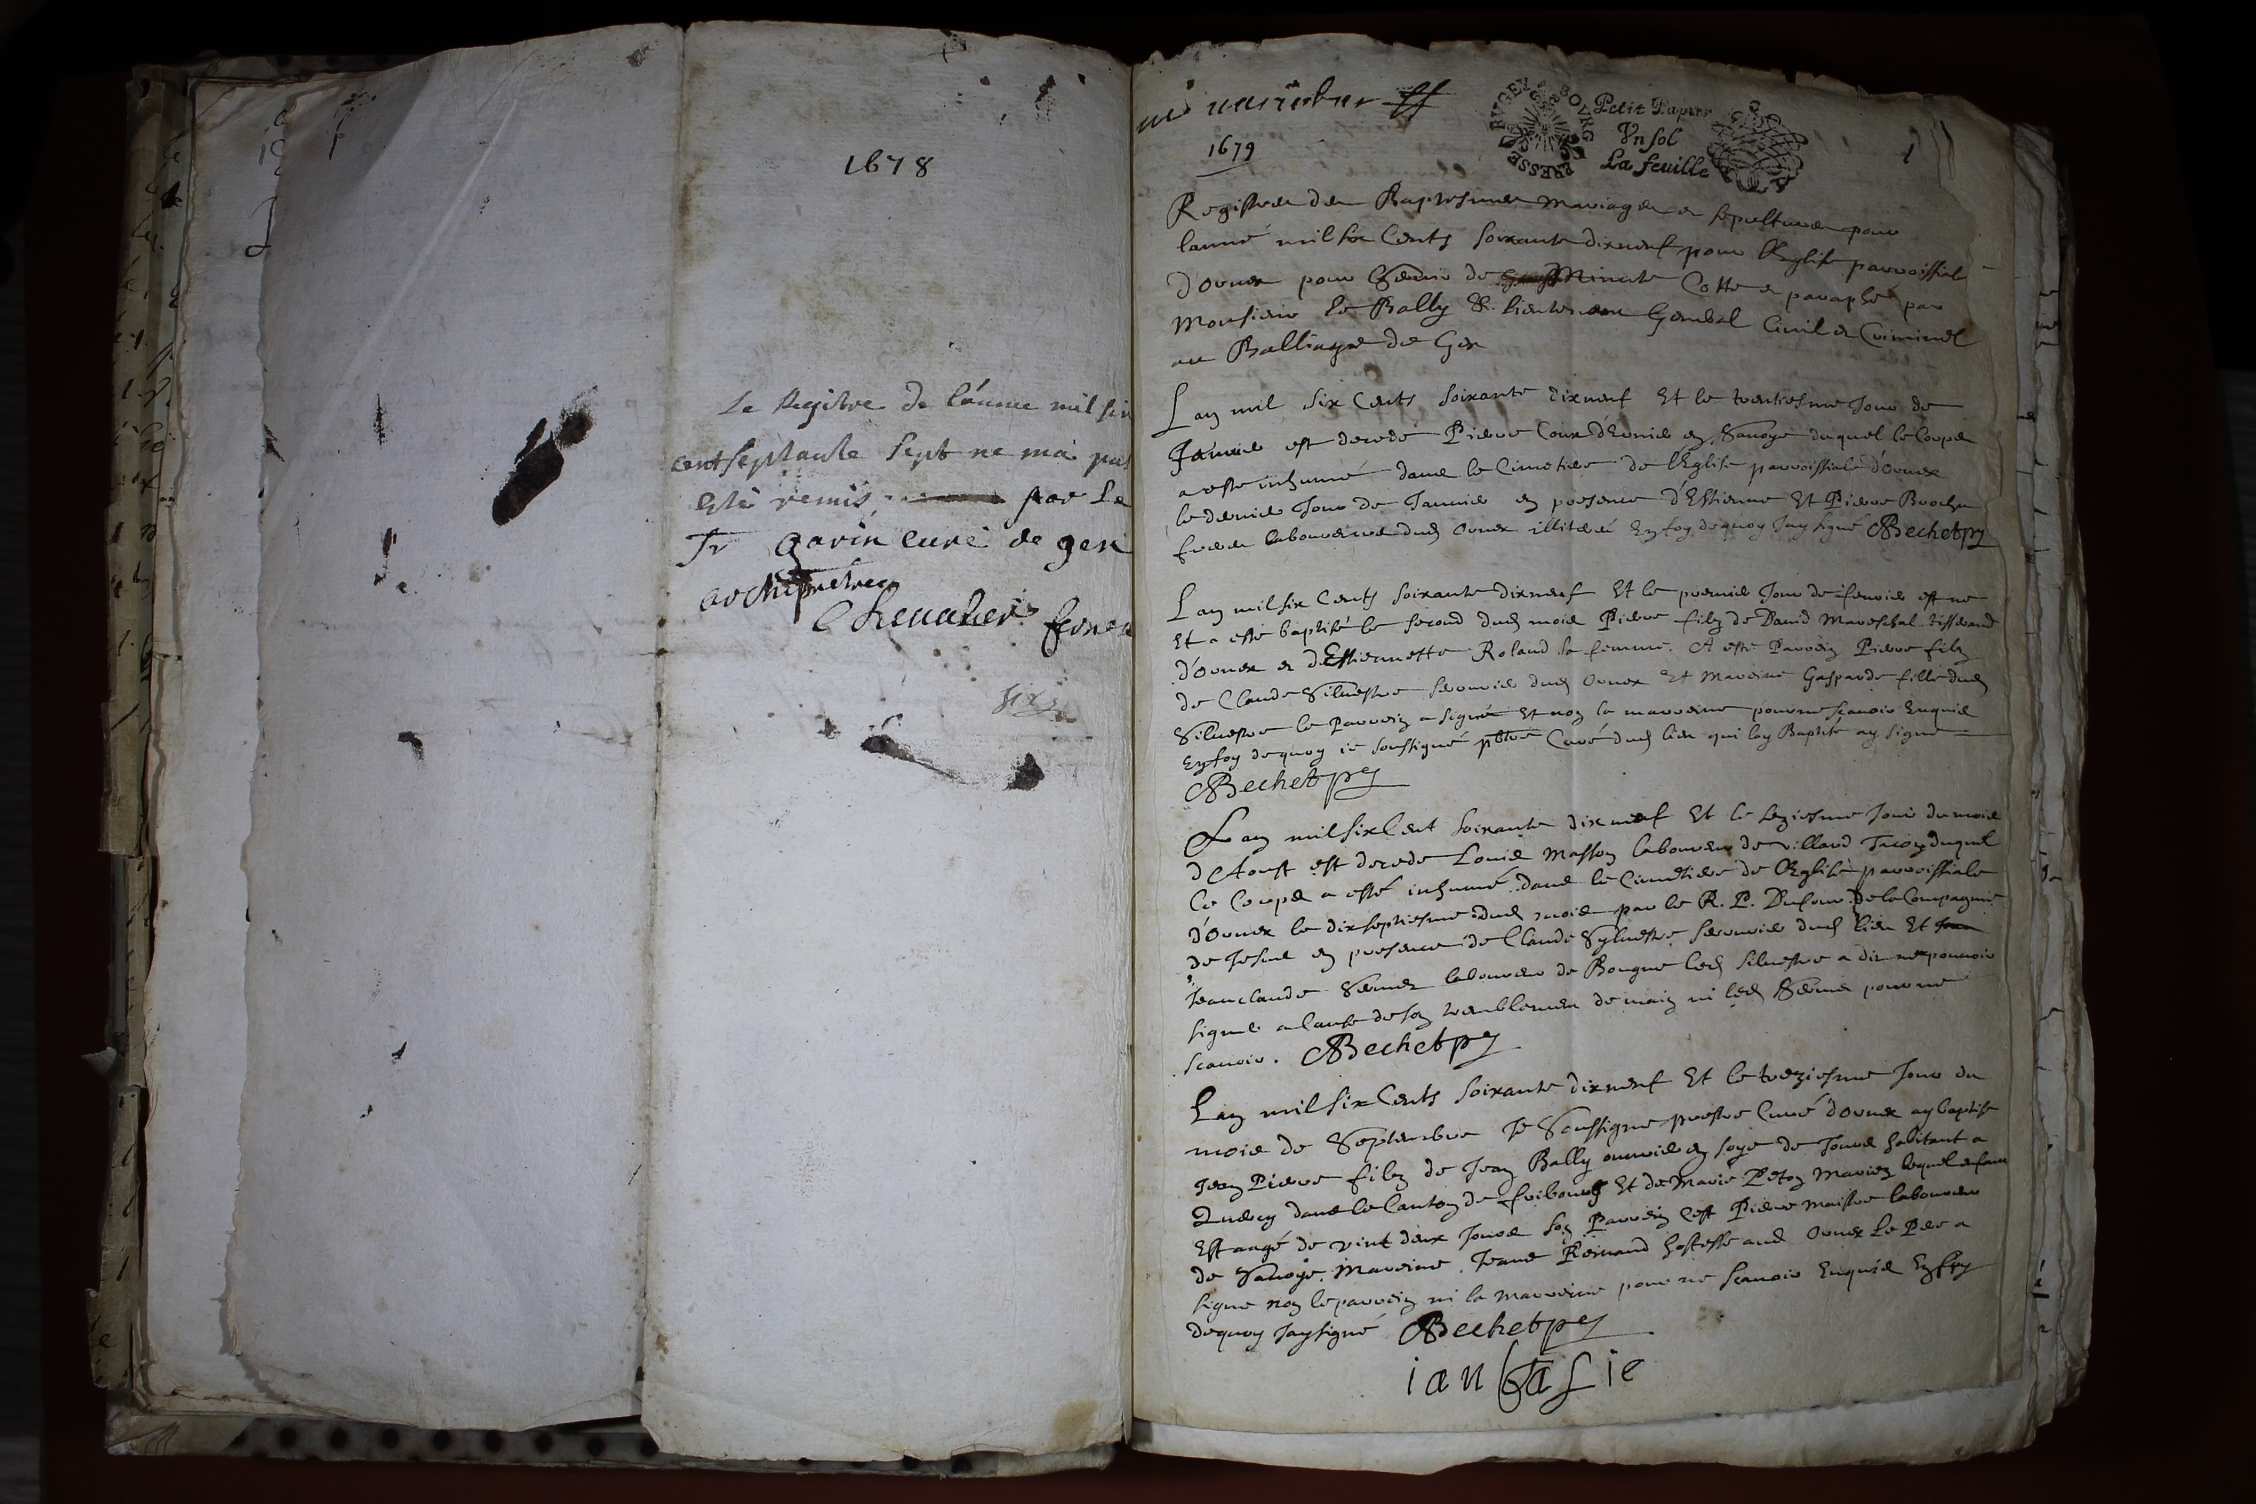 1678
Le Registre de lánnee mil six
cent septante sept ne má pas
esté remis par le
Sr gavin curé de gex
archipretre
Chevalier
1679
BVGEY BOVRG BRESSE
Petit Papier
Vn sol
La feuille
1
Registre des Baptesmes mariages et sepultures pour
lanné mil six Cents soixante dixneuf pour l'Eglise parroissial
d'Ornex pour servir de Minute Cotte et paraphé par
Monsieur le Bally & lieutenant General Civil et Criminel
au Balliage de Gex
Lan mil six Cents soixante dixneuf Et le trentiesme Jour de
Janvier est decedé Pierre en Savoye duquel le Corps
a esté inhumé dans le Cimetiere de l'Eglise parroissiale d'Ornex
le dernier Jour de Janvier en presence d'Estienne Et Pierre
freres laboureurs dud Ornex illiteré En foy dequoy Jay signé Bechet
Lan mil six Cents soixante dixneuf Et le premier Jour de fevrier est ne
Et a esté baptisé le second dud mois Pierre filz de David Mareschal tisserand
d'Ornex et d'Estiennette Roland sa femme. A esté Parrein Pierre filz
de Claude Silvestre serrurier dud Ornex Et Mareine Gasparde fille dud
Silvestre le Parrein a signé Et non la marreine pour ne sçavoir Enquis
En foy dequoy ie soussigné pbtre Curé dud lieu qui lay Baptisé ay signe
Bechet
Lan mil six Cent soixante dixneuf Et le seziesme Jour du mois
d'Aoust est decede Louis Masson laboureur de Villard Tacon duquel
le Corps a esté inhumé dans le Cimetiere de l'Eglise parroissiale
d'Ornex le dixseptiesme dud mois par le R. P. Dufour De la Compagnie
de Jesus en presence de Claude Sylvestre serrurier dud lieu Et
Jeanclaude laboureur de Bougne led silvestre a dit ne pouvoir
signer a Cause de son tremblement de main ni led pour ne
scavoir. Bechet
Lan mil six Cents soixante dixneuf Et le treziesme Jour du
mois de Septembre Je Soussigne prestre Curé d'Ornex ay baptise
Jean Pierre filz de Jean Bally ouvrier en soye de habitant a
dans le Canton de fribourg Et de Marie lequel enfant
Est aagé de vint deux Jours son Parrein est Pierre Maistre laboureur
de Savoye. Mareine Jeane hostesse aud Ornex le Pere a
signe non le parrein ni la marreine pour ne scavoir Enquis En foy
dequoy Jay signé Bechet